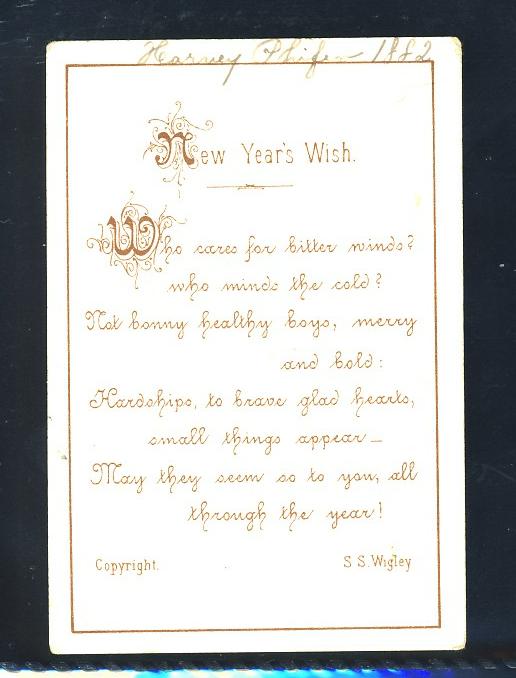 Harvey Phifer 1882
New Year's Wish.
Who cares for bitter winds?
who minds the cold?
Not bonny healthy boys, merry
and bold:
Hardships, to brave glad hearts,
small things appear—
May they seem so to you, all
through the year!
Copyright. S. S. Wigley